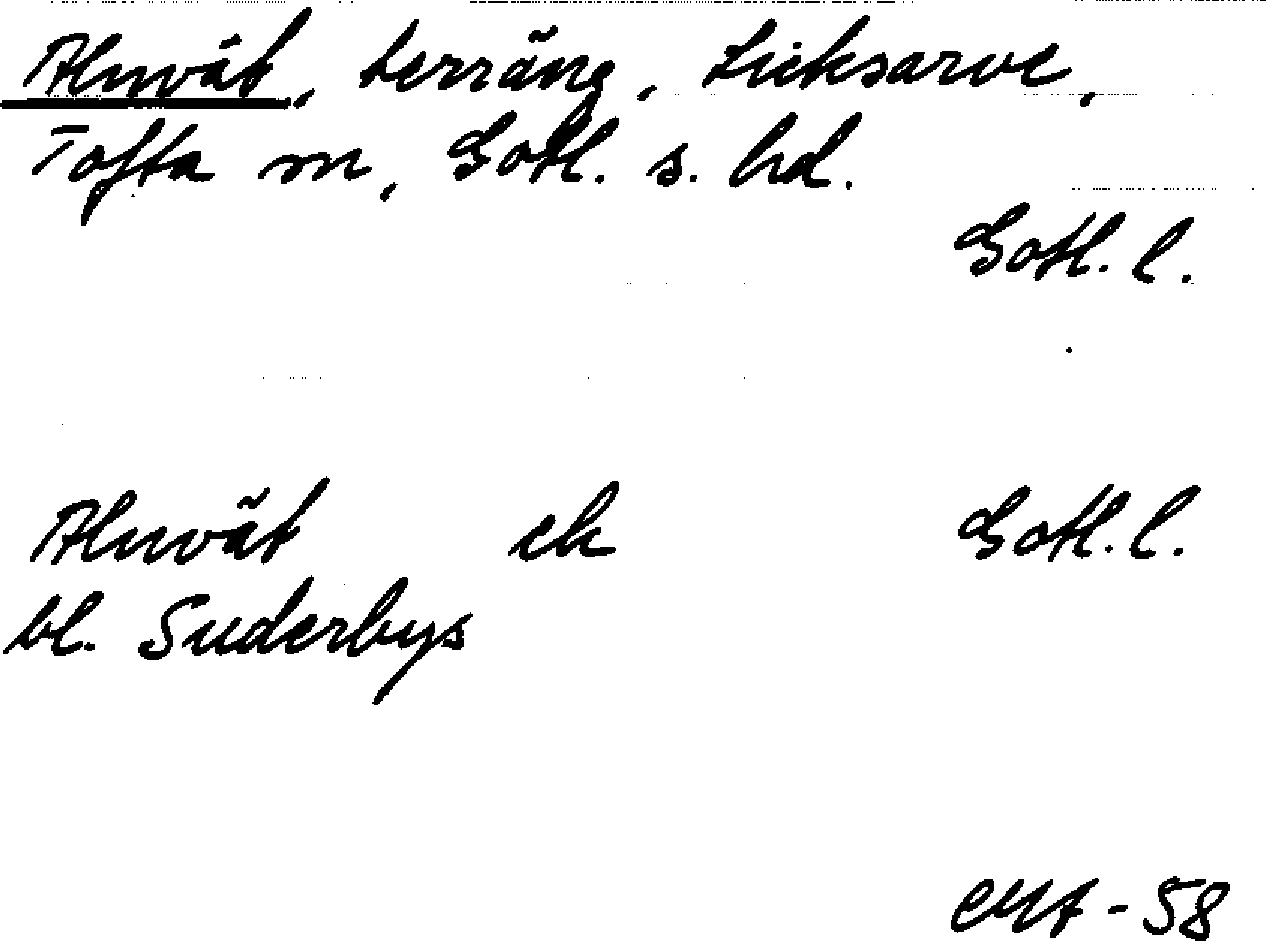 Alnvät, terräng, Licksarve,
Tofta sn, Gotl. s. hd.
Gotl. l.
Alnvät ek Gotl. l.
bl. Suderbys
-58